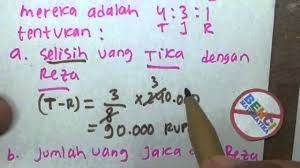 mereka adalah 4 : 3 : 1
tentukan : T J R
a. selisih uang Tika dengan
Reza
(T-R) = 3/8 × 240.000
3
= 90.000 RUP
b. Jumlah uang Jaka dan Reza